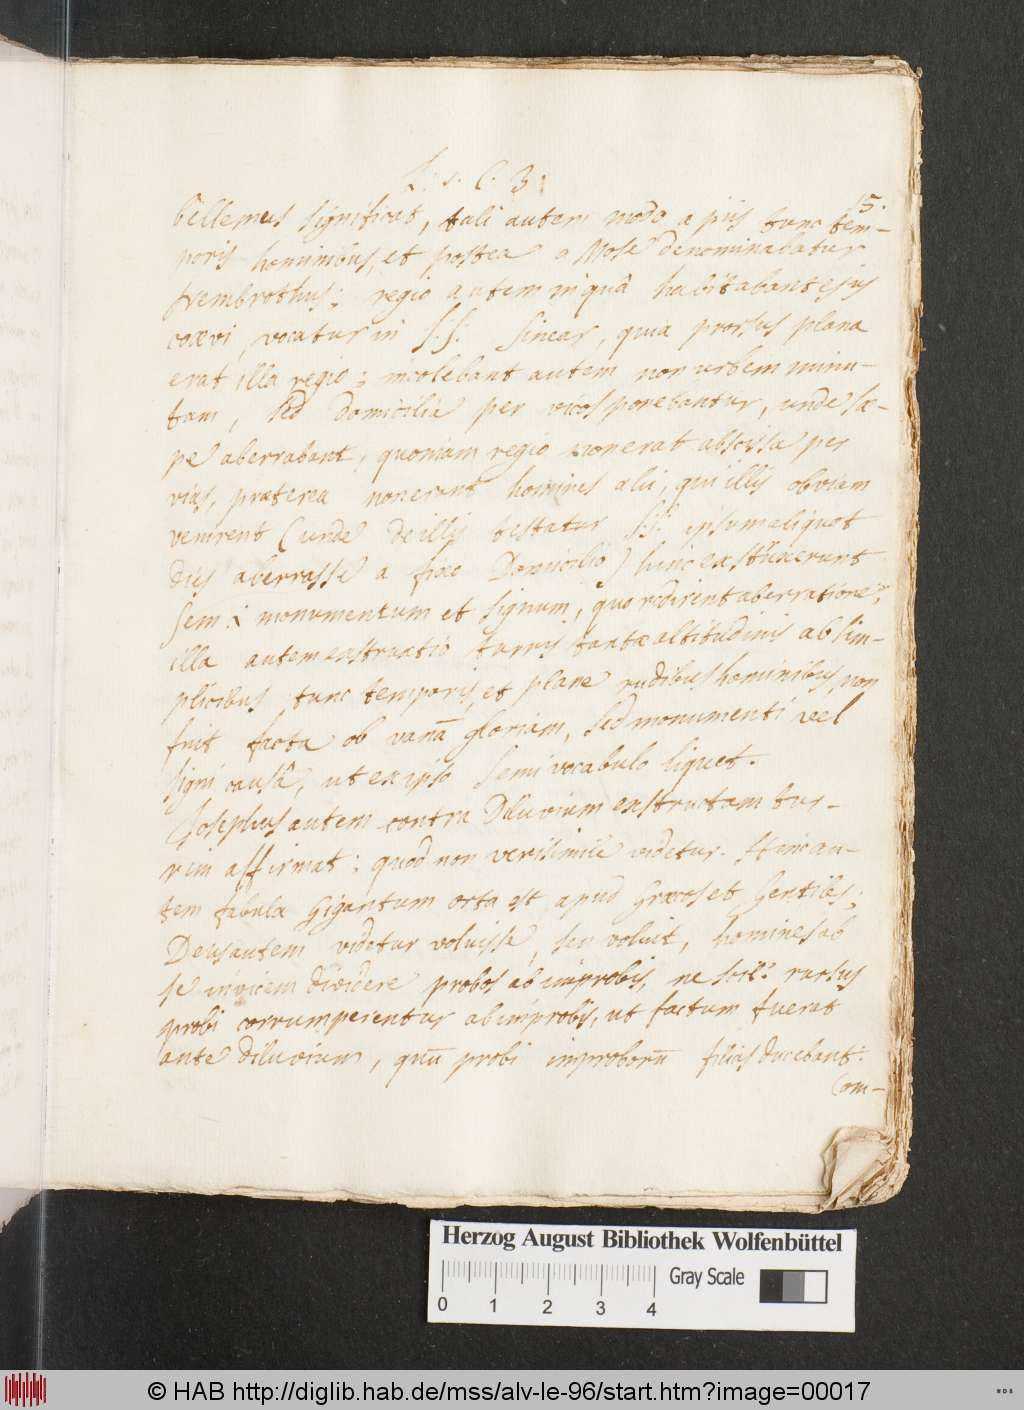 L. 1. C. 3.
15.
bellemus significat, tali autem modo a piis tunc tem-
poris hominibus, et postea a Mose denominabatur
Nembrothus; regio autem in quâ habitabant ejus
coævi, vocatur in S.S. Sinear, quia prorsus plana
erat illa regio; incolebant autem non urbem muni-
tam, sed domicilia per vicos ponebantur, unde sæ-
pe aberrabant, quoniam regio non erat abscissa per
vias, præterea non erant homines alii, qui illis obviam
venirent (unde de illis testatur S.S. ipsum aliquot
dies aberrasse a hoc Domicilio) hinc exstruxerunt
Sem: i monumentum et signum, quo redirent aberratione,
illa autem exstructio turris tantæ altitudinis ab sim-
plicibus tunc temporis, et plane rudibus hominibus, non
fuit facta ob vanā gloriam, sed monumenti vel
signi causâ, ut ex ipso Sem i vocabulo liquet.
Josephus autem contra Diluvium exstructam tur-
rim affirmat; quod non verisimile videtur. Hinc au-
tem fabula Gigantum orta est apud Græcos et Gentiles;
Deus autem videtur voluisse, seu voluit, homines ab
se invicem dividere probos ab improbis, ne scil: rursus
probi corrumperentur ab improbis, ut factum fuerat
ante diluvium, quū probi improborū filias ducebant:
Com-
Herzog August Bibliothek Wolfenbüttel
0 1 2 3 4
Gray Scale
© HAB http://diglib.hab.de/mss/alv-le-96/start.htm?image=00017
WDB